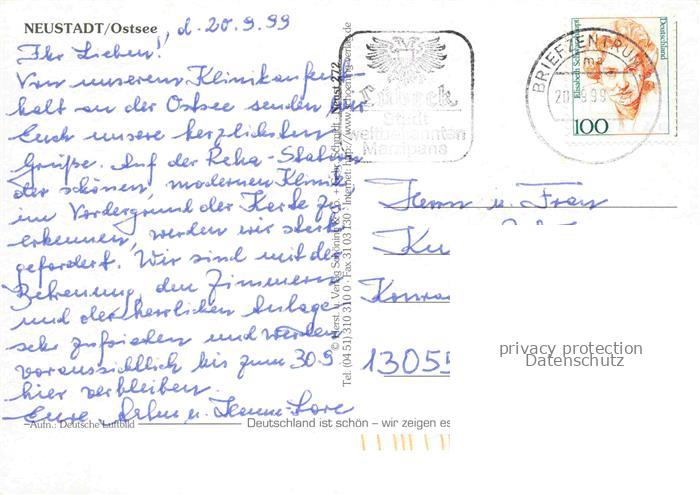 NEUSTADT/Ostsee, d. 20.9.99
Ihr Lieben!
Von unserem Klinikaufent-
halt an der Ostsee senden wir
Euch unsere herzlichsten
Grüße. Auf der Reha-Station
der schönen, modernen Klinik
im Vordergrund der Karte zu
erkennen, werden wir stark
gefordert. Wir sind mit der
Betreuung, den Zimmern
und der herrlichen Anlage
sehr zufrieden und werden
voraussichtlich bis zum 30.9.
hier verbleiben.
Eure u. Hanne-Lore
Aufn.: Deutsche Luftbild
Deutschland ist schön – wir zeigen es
Tel. (04 51) 310 310 0 · Fax 31 03 130 · Internet: http://www.schoening-verlag.de
Neust 272
Lübeck
Stadt
weltbekannten
Marzipans
BRIEFZENTRUM
20.9.99
Deutschland
Elisabeth Schwarzhaupt
100
Herrn u. Frau
Ku
Konra
13055
privacy protection
Datenschutz